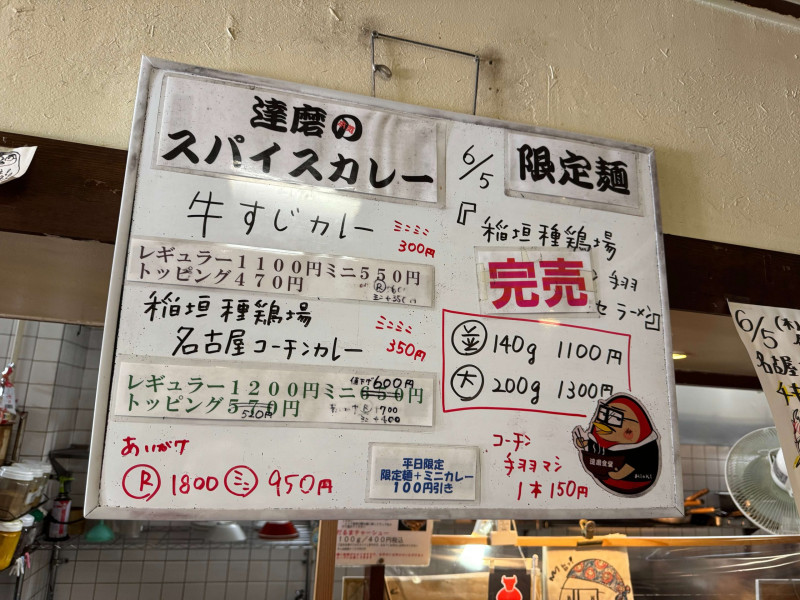 達磨の
スパイスカレー
牛すじカレー
ミニミニ
300円
レギュラー1100円ミニ550円
トッピング470円
稲垣種鶏場
名古屋コーチンカレー
ミニミニ
350円
値下げ600円
レギュラー1200円ミニ650円
トッピング570円
520円
あいがけ
Ⓡ1800 ミニ 950円
6/5
限定麺
『稲垣種鶏場
完売
手羽
ラーメン』
並 140g 1100円
大 200g 1300円
平日限定
限定麺+ミニカレー
100円引き
コーチン
手羽マン
1本150円
達磨食堂
6/5
名古屋
100g/400円税込